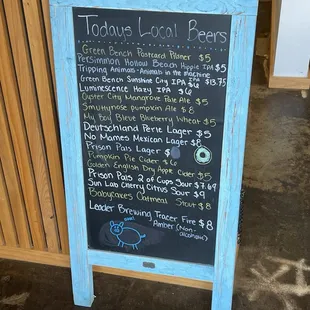 Todays Local Beers
Green Bench Postcard Pilsner $5
Persimmon Hollow Beach Hippie IPA $5
Tripping Animals - Animals in the machine
Green Bench Sunshine City IPA $13.75
Luminescence Hazy IPA $6
Oyster City Mangrove Pale Ale $5
Smuttynose pumpkin Ale $8
My Boy Bleue Blueberry Wheat $5
Deutschland Perle Lager $5
No Mames Mexican Lager $8
Prison Pals Lager $
Pumpkin Pie Cider $6
Golden English Dry Apple Cider $5
Prison Pals 2 of Cups Sour $7.69
Sun Lab Cherry Citrus Sour $9
Babycakes Oatmeal Stout $8
Leader Brewing Tracer Fire $8
Amber (Non-
alcoholic)